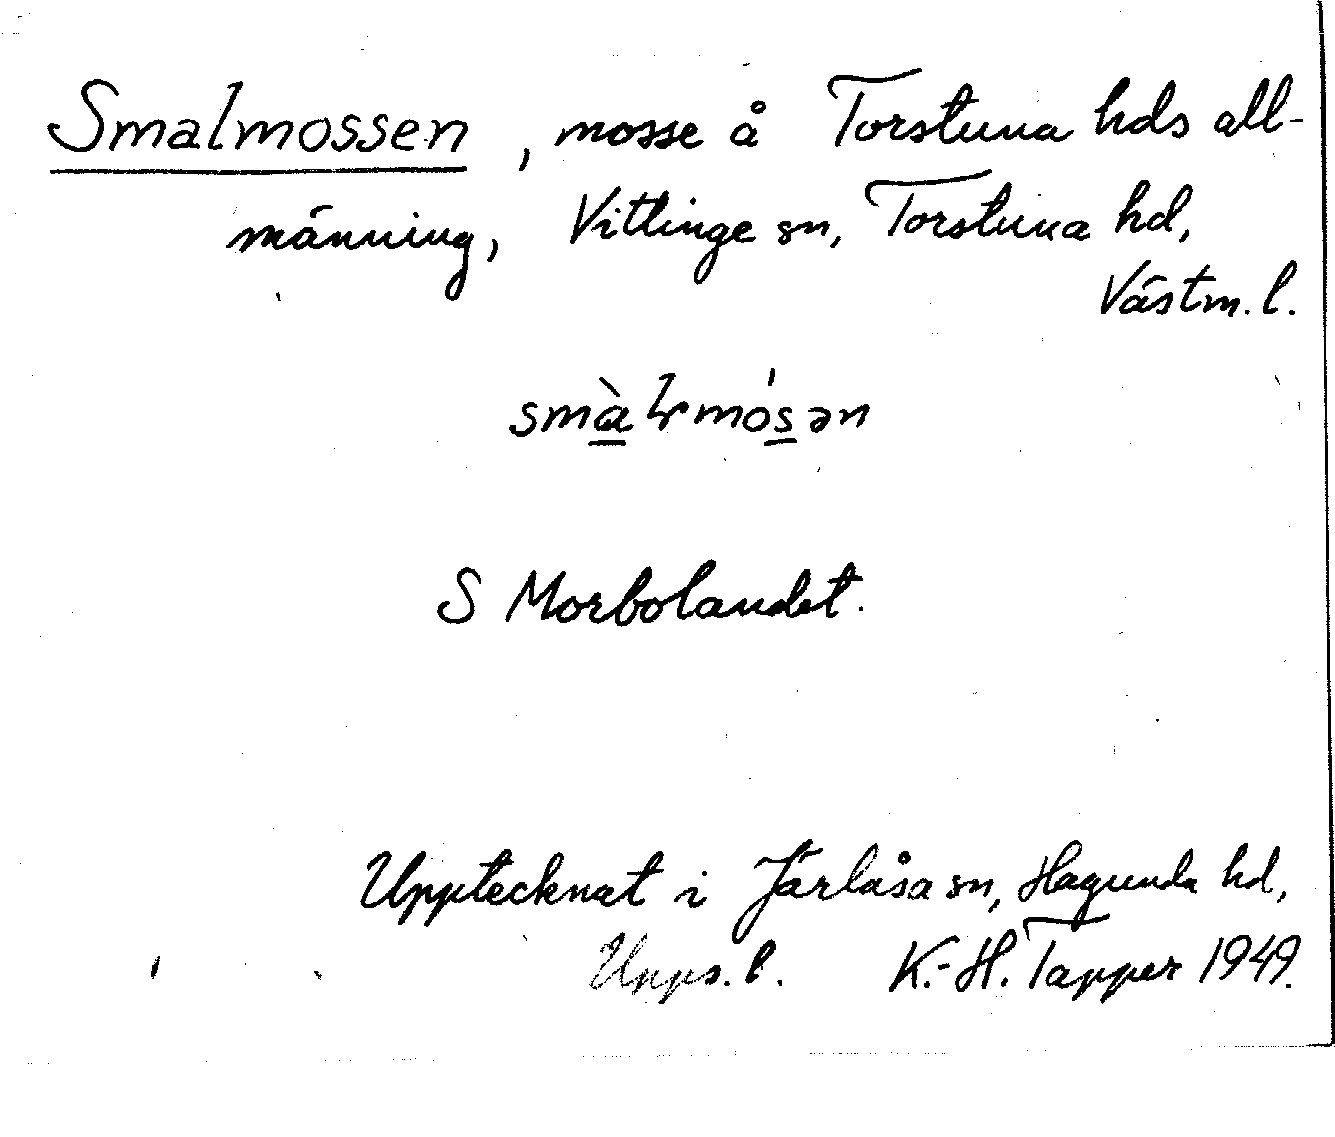 Smalmossen, mosse å Torstuna hds all-
männing, Vittinge sn, Torstuna hd,
Västm. l.
smàɫmósən
S Morbolandet.
Upptecknat i Järlåsa sn, Hagunda hd,
Upps. l. K.-H. Tapper 1949.